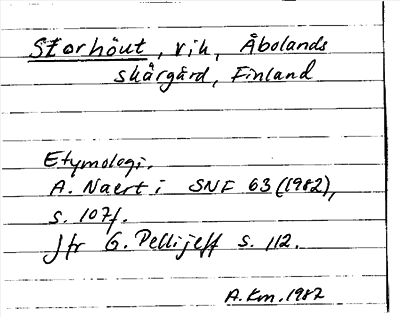 Storhöut, vik, Åbolands
skårgård, Finland
Etymologi.
A. Naert i SNF 63 (1982),
s. 107f.
Jfr G. Pellijeff s. 112.
A.Km. 1987